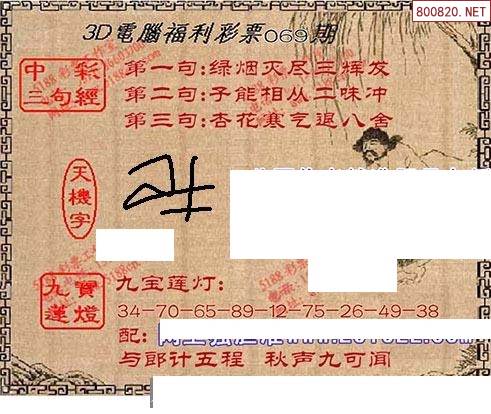 800820.NET
3D電腦福利彩票069期
中彩
三句經
第一句:绿烟灭尽三辉发
第二句:子能相从二味冲
第三句:杏花寒乞退八舍
天機字
九寶
蓮燈
九宝莲灯:
34-70-65-89-12-75-26-49-38
配:
与郎计五程 秋声九可闻